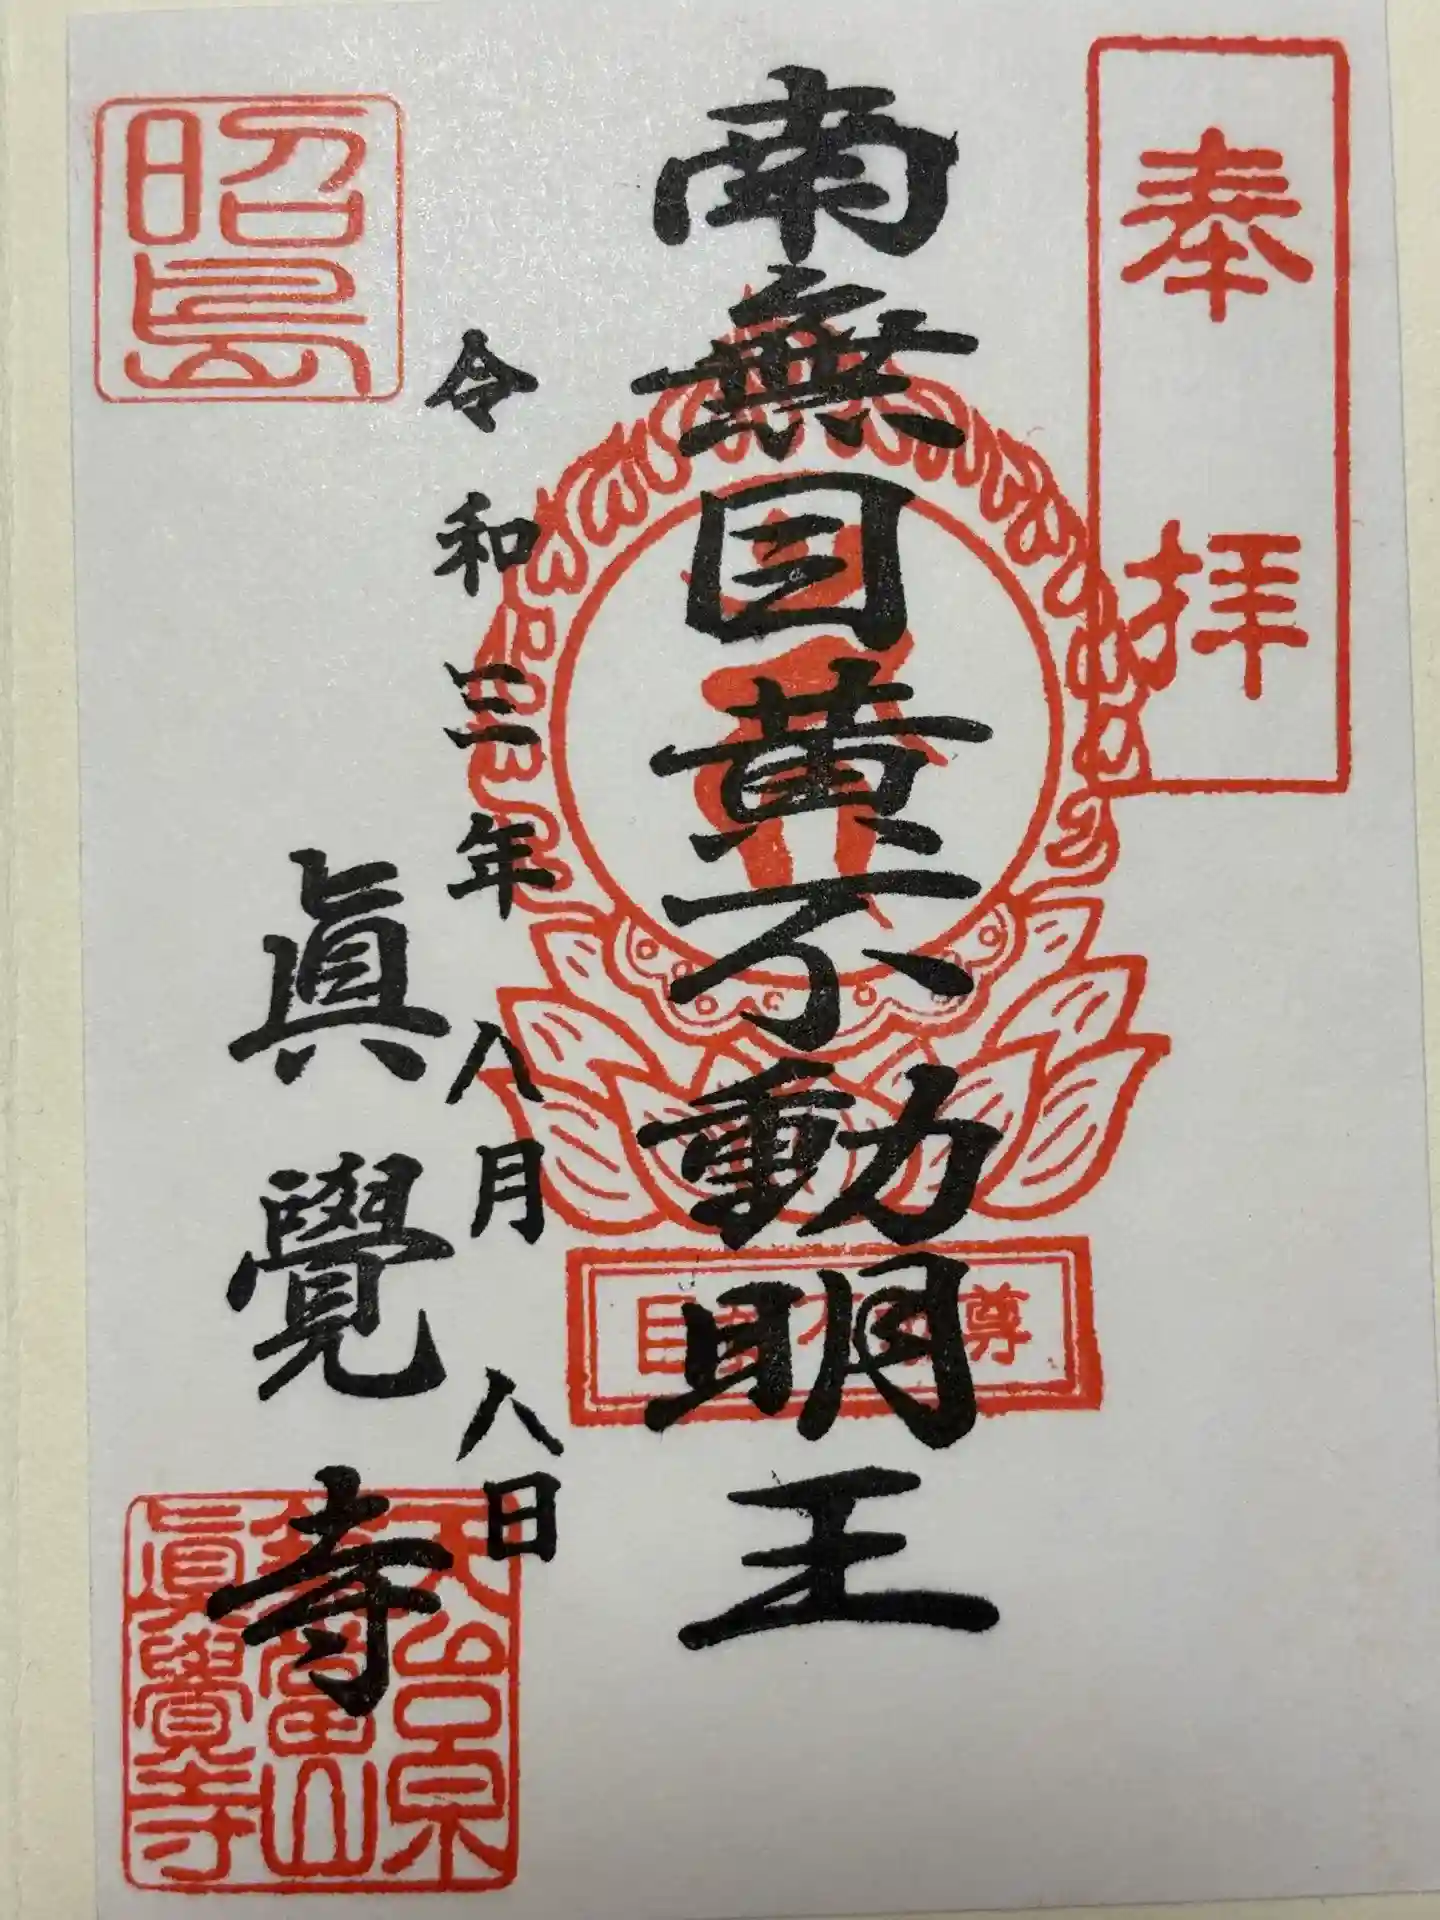 奉拝
南無目黄不動明王
目黄不動尊
令和三年八月八日
眞覺寺
昭島
天台宗
富山
眞覺寺